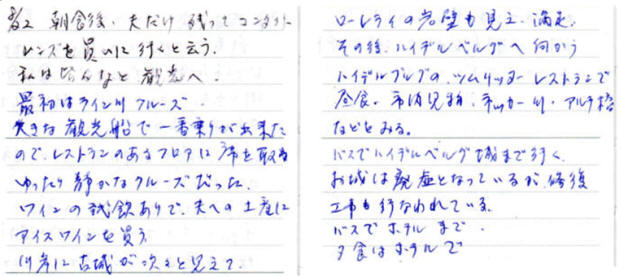 朝食後、夫だけ残ってコンタクト
レンズを買いに行くと言う。
私はみんなと観光へ。
最初はライン川クルーズ。
大きな観光船で一番乗りが出来た
ので、レストランのあるフロアに席を取る
ゆったり静かなクルーズだった。
ワインの試飲ありで、夫への土産に
アイスワインを買う
川岸に古城が次々と見えて、
ローレライの岩壁も見え、満足。
その後、ハイデルベルグへ向かう
ハイデルブルグの、ツムリッター レストランで
昼食、市内見物、ネッカー川・アルテ橋
などをみる。
バスでハイデルベルグ城まで行く。
お城は廃虚となっているが、修復
工事も行なわれている。
バスでホテルまで。
夕食はホテルで